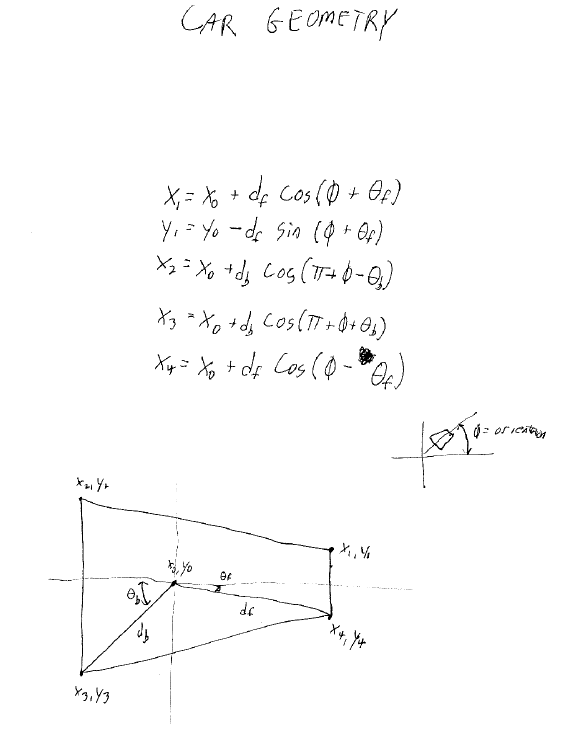 CAR GEOMETRY
x₁ = x₀ + d_f cos(ϕ + θ_f)
y₁ = y₀ - d_f sin (ϕ + θ_f)
x₂ = x₀ + d_b cos(π + ϕ - θ_b)
x₃ = x₀ + d_b cos(π + ϕ + θ_b)
x₄ = x₀ + d_f cos(ϕ - θ_f)
ϕ = orientation
x₂, y₂
x₁, y₁
x₀, y₀
θ_f
θ_b
d_f
d_b
x₄, y₄
x₃, y₃